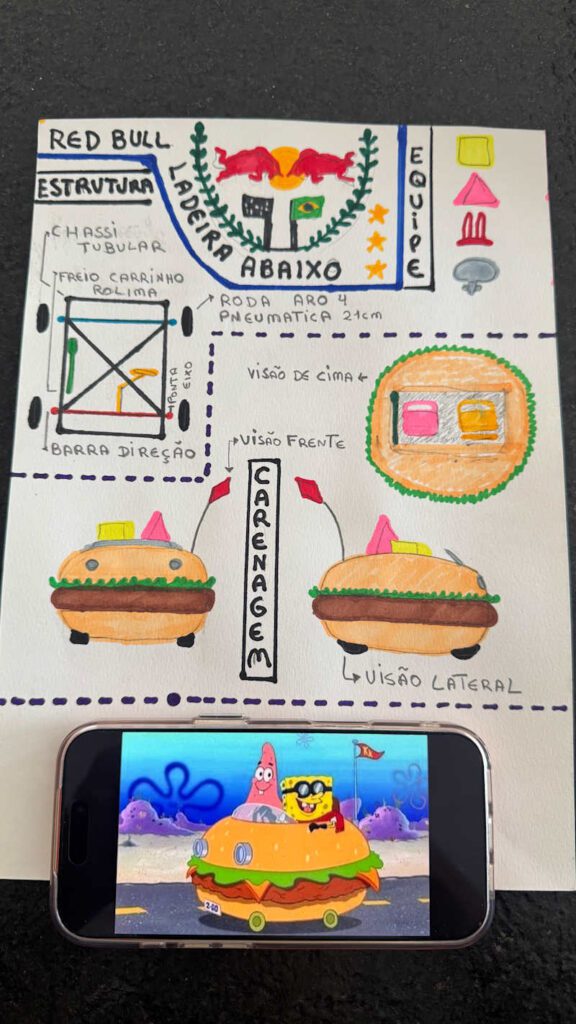 RED BULL
LADEIRA ABAIXO
EQUIPE
ESTRUTURA
CHASSI
TUBULAR
FREIO CARRINHO
ROLIMA
RODA ARO 4
PNEUMATICA 21cm
PONTA
EIXO
BARRA DIREÇÃO
VISÃO DE CIMA
VISÃO FRENTE
CARENAGEM
VISÃO LATERAL
KK